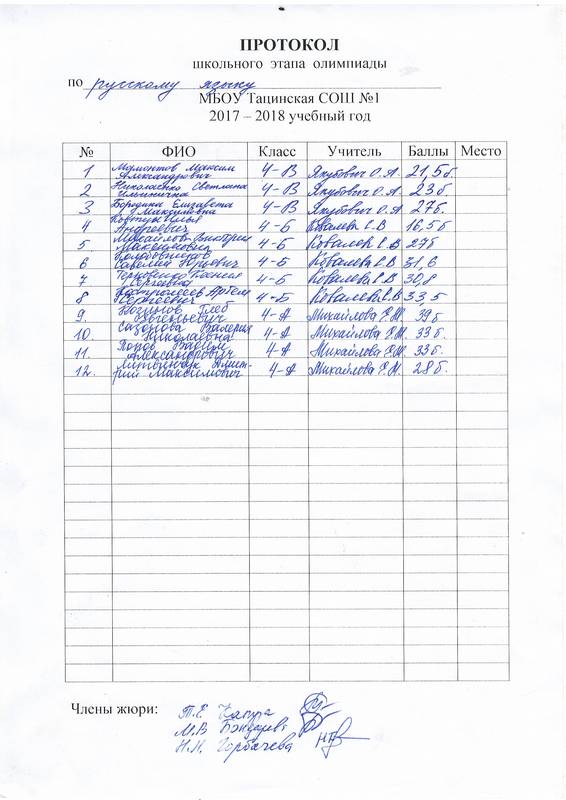 ПРОТОКОЛ
школьного этапа олимпиады
по русскому языку
МБОУ Тацинская СОШ №1
2017 – 2018 учебный год
№ ФИО Класс Учитель Баллы Место
1 Мамонтов Максим Александрович 4-В Якубович О.А. 21,5б.
2 Николаенко Светлана Ильинична 4-В Якубович О.А. 23б
3 Бородина Елизавета Максимовна 4-В Якубович О.А 27б.
4 Ковтун Илья Андреевич 4-Б Ковалева С.В 16,5б
5 Михайлов Дмитрий Максимович 4-Б Ковалева С.В 29б
6 Савелий Юрьевич 4-Б Ковалева С.В 31,6
7 Терновенко Ксения Сергеевна 4-Б Ковалева С.В 30,8
8 Артем Сергеевич 4-Б Ковалева С.В 33,5
9. Глеб Евгеньевич 4-А Михайлова Е.М. 39б
10. Сазонова Валерия Николаевна 4-А Михайлова Е.М. 33б.
11. Попов Вадим Александрович 4-А Михайлова Е.М. 33б.
12. Дмитрий Максимович 4-А Михайлова Е.М. 28б.
Члены жюри: Т.Е.
М.В
Н.Н. Горбачева